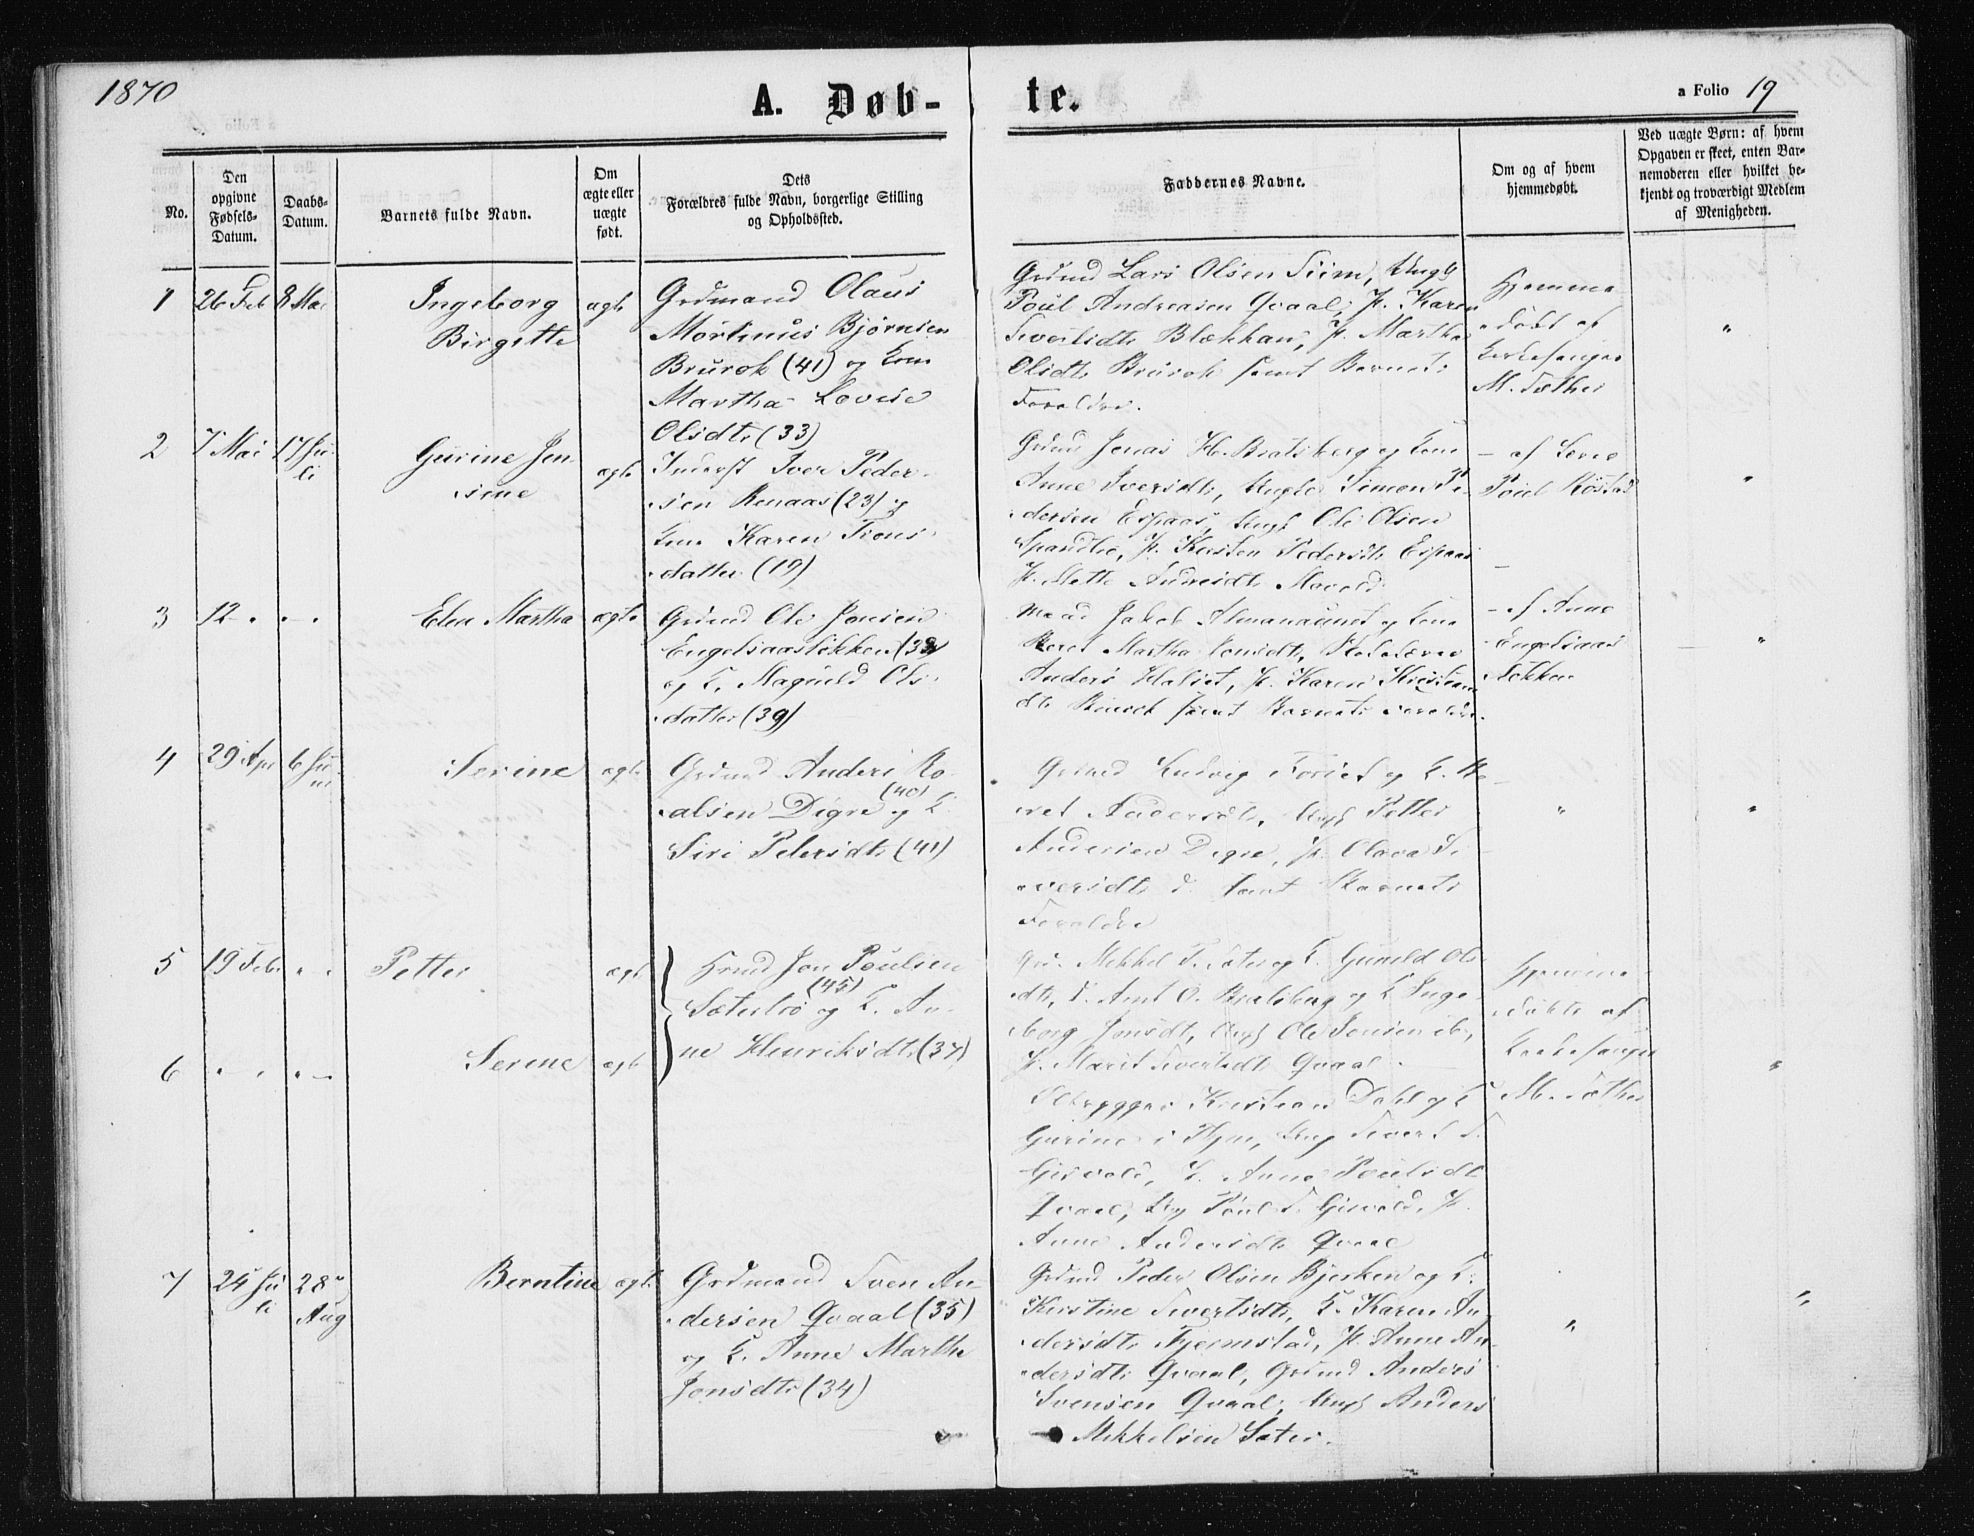 1870
A. Døb-
te.
a Folio 19
No.
Den
opgivne
Fødsels-
Datum.
Daabs-
Datum.
Barnets fulde Navn.
Om
ægte eller
uægte
født.
Dets
Forældres fulde Navn, borgerlige Stilling
og Opholdssted.
Faddernes Navne.
Om og af hvem
hjemmedøbt.
Ved uægte Børn: af hvem
Opgaven er skeet, enten Bar-
nemoderen eller hvilket be-
kjendt og troværdigt Medlem
af Menigheden.
1
26 Feb
8 Mai
Ingeborg
Birgitte
ægte
Grdmand Olaus
Mortinus Bjørnsen
Brurok (41) og Kone
Martha Lovise
Olsdtr (33)
Lars Olsen Siim, Ungk
Poul Andreasen Qvaal, P. Karen
Sivertsdtr Blækkan, P. Martha
Olsdtr Brurok samt Barnets
Forældre.
Hjemme
døbt af
Kirkesanger
M. Fæther
"
2
7 Mai
17 Ju-
li
Gurine Jen-
sine
ægte
Inderst Iver Peder-
sen Renaas (23) og
Kone Karen Trons-
datter (19)
Jonas H. Bratsberg og Kone
Anne Iversdtr, Ungk Simon Pe-
dersen Espaas, Ungk Ole Olsen
P. Kirsten Pedersdtr Espaas
P. Mette
- af
Poul
"
3
12 " "
" "
Elen Martha
ægte
Grdmd Ole Jonsen
Engelsaasløkken
og K. Magnild Ols-
datter (39)
Jakob Almanaunet og Kone
Beret Martha Jonsdtr,
Anders Halset, P. Karen
dtr Brurok samt Barnets Forældre.
- af Anne
Engelsaas
løkken
"
4
29 Apr
6 Ju-
ni
Serine
ægte
Grdmd Anders Ro-
alsen Digre (40) og K.
Siri Petersdtr (41)
Grdmd Ludvig Forset og K. Be-
ret Andersdtr, Ungk Petter
Andersen Digre, P. Olava Si-
vertsdtr d. samt Barnets
Forældre
"
"
5
19 Feb
" "
Petter
ægte
Jon Poulsen
Sæterbrø (45) og K. An-
ne Henriksdtr (37)
Mikkel T. Sæter og K. Gunild Ols-
dtr, Arnt O. Bratsberg og K. Inge-
borg Jonsdtr, Ungk Ole Jonsen ib,
P. Marit Sivertsdtr Qvaal.
Hjemme
døbte af
Kirkesanger
M. Fæther
6
" "
" "
Serine
ægte
Kristian Dahl og K
Gurine i Thjm, Ung Sivert T.
Gisvold, P. Anne Poulsdtr
Qvaal, Ung Poul T. Gisvold, P.
Anne Andersdtr Qvaal
"
7
24 Ju-
li
28
Aug
Berntine
ægte
Grdmand Sven An-
dersen Qvaal (35)
og K. Anne Martha
Jonsdtr (34)
Grdmd Peder Olsen Bjerken og K.
Kirstine Sivertsdtr, K. Karen An-
dersdtr Fjermstad, P. Anne An-
dersdtr Qvaal, Grdmd Anders
Svensen Qvaal, Ungk Anders
Mikkelsen Sæter.
"
"